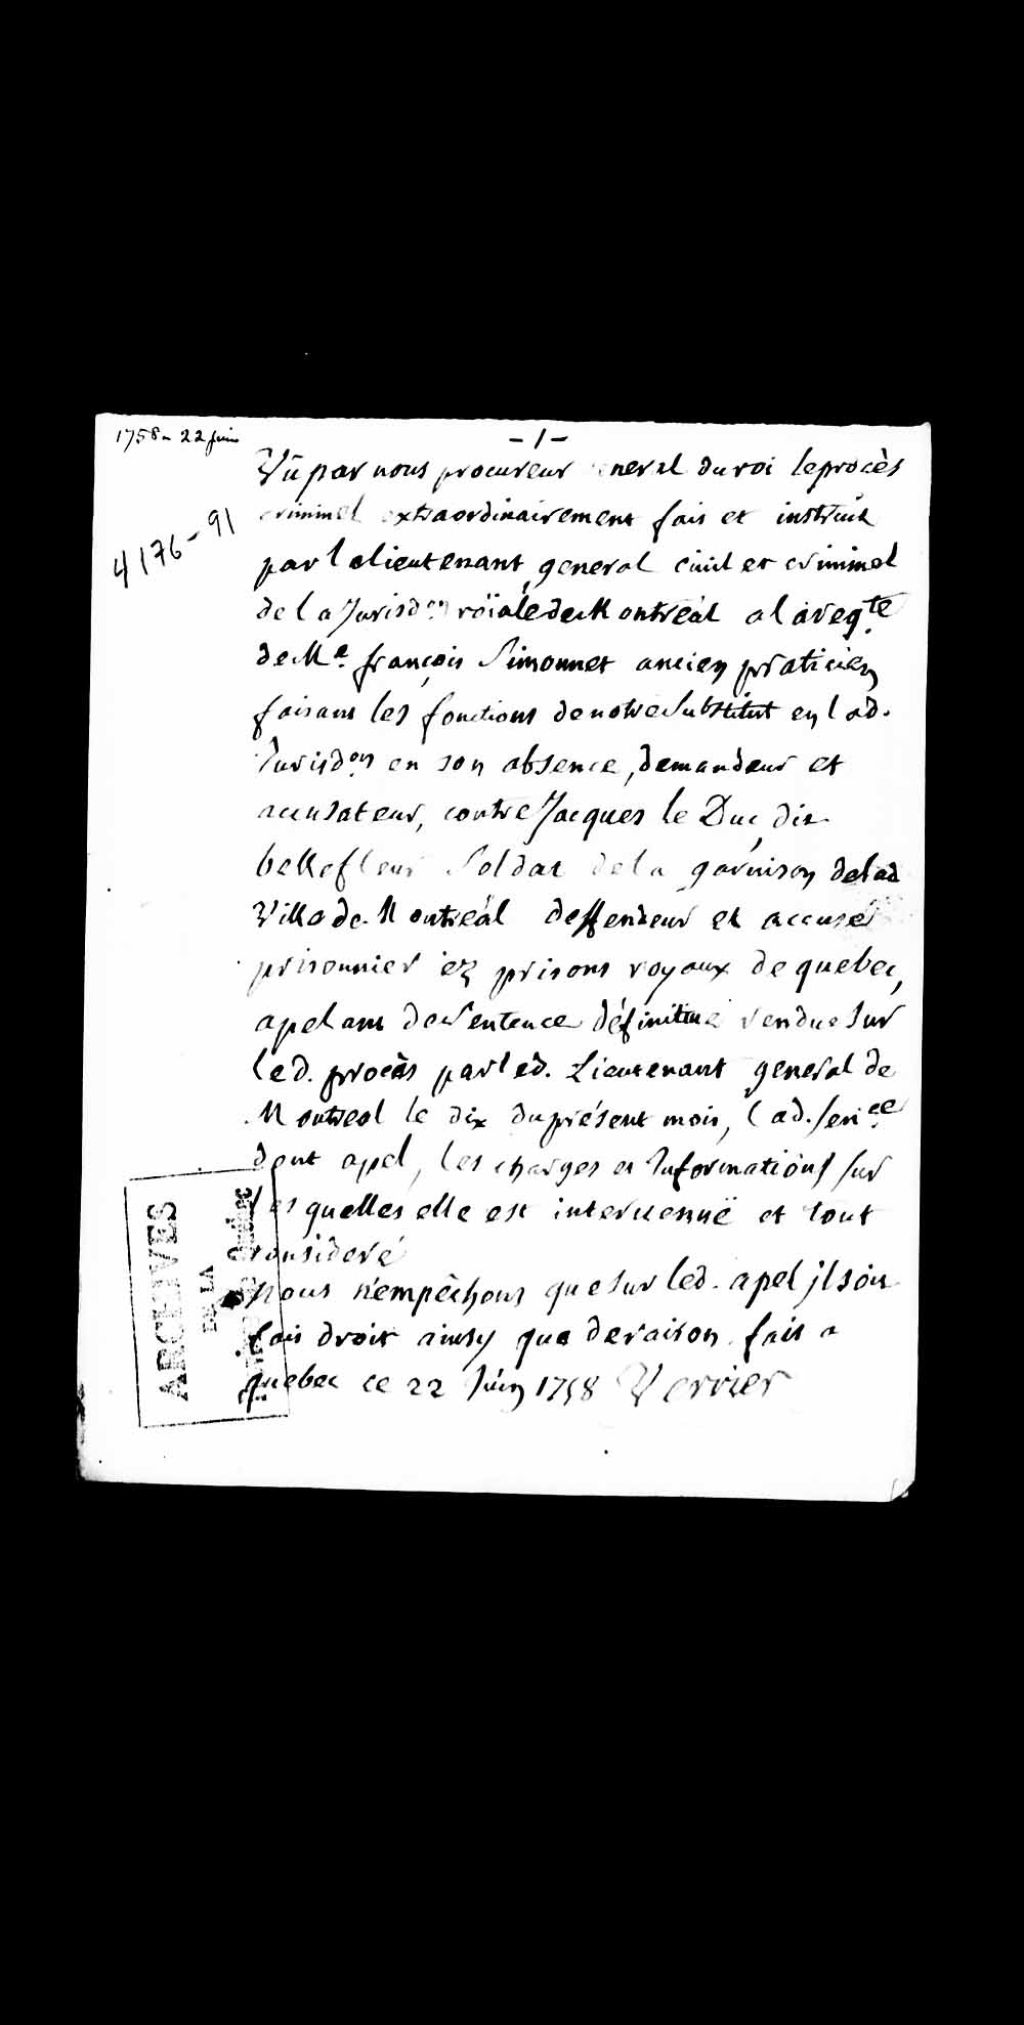 1758 - 22 juin
- 1 -
4176-91
Vû par nous procureur general du roi le procès
criminel extraordinairement fait et instruit
par le lieutenant general civil et criminel
de la Jurisd.on roïale de Montréal a la reqte
de Me. françois Simonnet ancien praticien
faisant les fonctions de notre substitut en lad.
Jurisdon en son absence, demandeur et
accusateur, contre Jacques le Duc, dit
bellefleur Soldat de la garnison delad
Ville de Montreál deffendeur et accusé
prisonnier ez prisons royaux de quebec,
apelant de sentence définitive rendue sur
led. procès par led. Lieutenant general de
Montreal le dix du présent mois, lad. sence
dont apel, les charges et Informations sur
lesquelles elle est intervenuë et tout
consideré
Nous n'empêchons que sur led. apel jl soit
fait droit ainsy que de raison. fait a
quebec ce 22 Juin 1758 Verrier
ARCHIVES
DE LA
Province de Québec